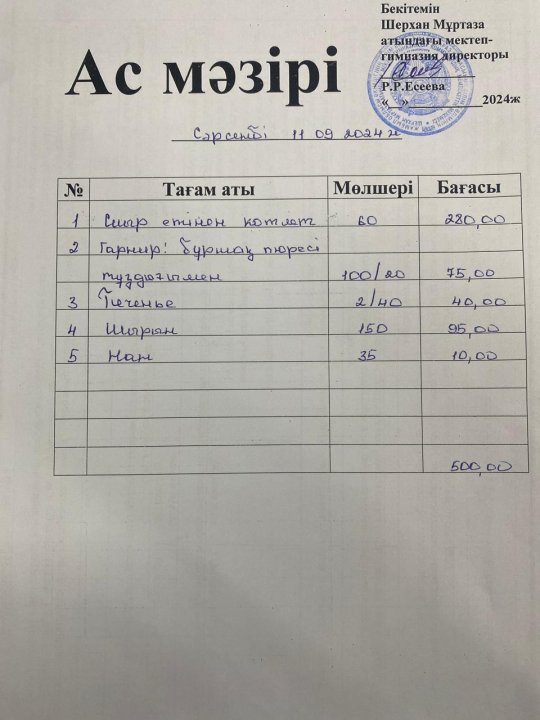 Бекітемін
Шерхан Мұртаза
атындағы мектеп-
гимназия директоры
Р.Р.Есеева
«__»__________2024ж
Ас мәзірі
Сәрсенбі 11 09 2024 ж
№ Тағам аты Мөлшері Бағасы
1 Сиыр етінен котлет 60 280,00
2 Гарнир: бұршақ пюресі
тұздығымен 100/20 75,00
3 Печенье 2/40 40,00
4 Шырын 150 95,00
5 Нан 35 10,00
500,00